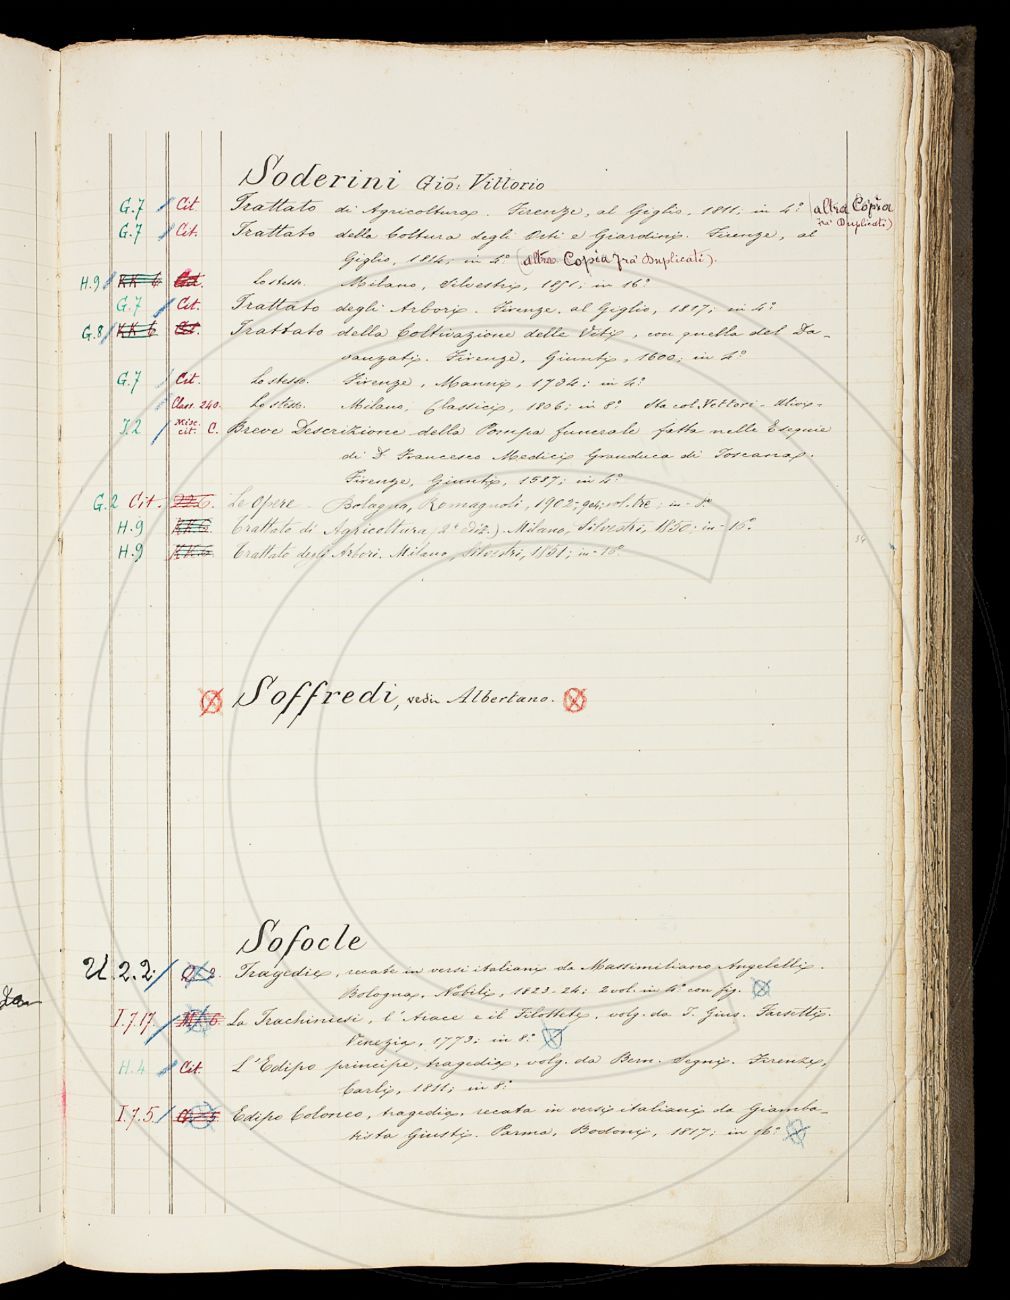 Soderini Gio: Vittorio
G.7 Cit. Trattato di Agricoltura. Firenze, al Giglio, 1811, in 4.° (altra Copia
fra Duplicati)
G.7 Cit. Trattato della Coltura degli Orti e Giardini. Firenze, al
Giglio, 1814; in 4.° (altra Copia fra Duplicati).
H.9 Lo stesso. Milano, Silvestri, 1851; in 16.°
G.7 Cit. Trattato degli Arbori. Firenze, al Giglio, 1817; in 4.°
G.8 KK 6 Cit. Trattato della Coltivazione delle Viti, con quella del Da-
vanzati. Firenze, Giunti, 1600; in 4.°
G.7 Cit. Lo stesso. Firenze, Manni, 1734; in 4.°
Class. 240. Lo stesso. Milano, Classici, 1806; in 8.° Sta col Vettori-Ulivi.
Misc.
cit. C. Breve Descrizione della Pompa funerale fatta nelle Esequie
di D. Francesco Medici Granduca di Toscana.
Firenze, Giunti, 1587; in 4.°
G.2 Cit. Le Opere. Bologna, Romagnoli, 1902; vol. tre; in-8.°
H.9 Trattato di Agricoltura (2.a ediz.) Milano, Silvestri, 1850; in-16.°
H.9 Trattato degli Arbori. Milano, Silvestri, 1851; in-16.°
34
Soffredi, vedi Albertano.
Sofocle
U.2.2. Tragedie, recate in versi italiani da Massimiliano Angelelli.
Bologna, Nobili, 1823-24; 2 vol. in 4.° con fig.
I.7.17. La Trachiniesi, l'Aiace e il Filottete, volg. da T. Gius. Farsetti.
Venezia, 1773; in 8.°
H.4 Cit. L'Edipo principe, tragedia, volg. da Bern. Segni. Firenze,
Carli, 1811; in 8.°
I.7.5 Edipo Coloneo, tragedia, recata in versi italiani da Giamba-
tista Giusti. Parma, Bodoni, 1817; in 16.°